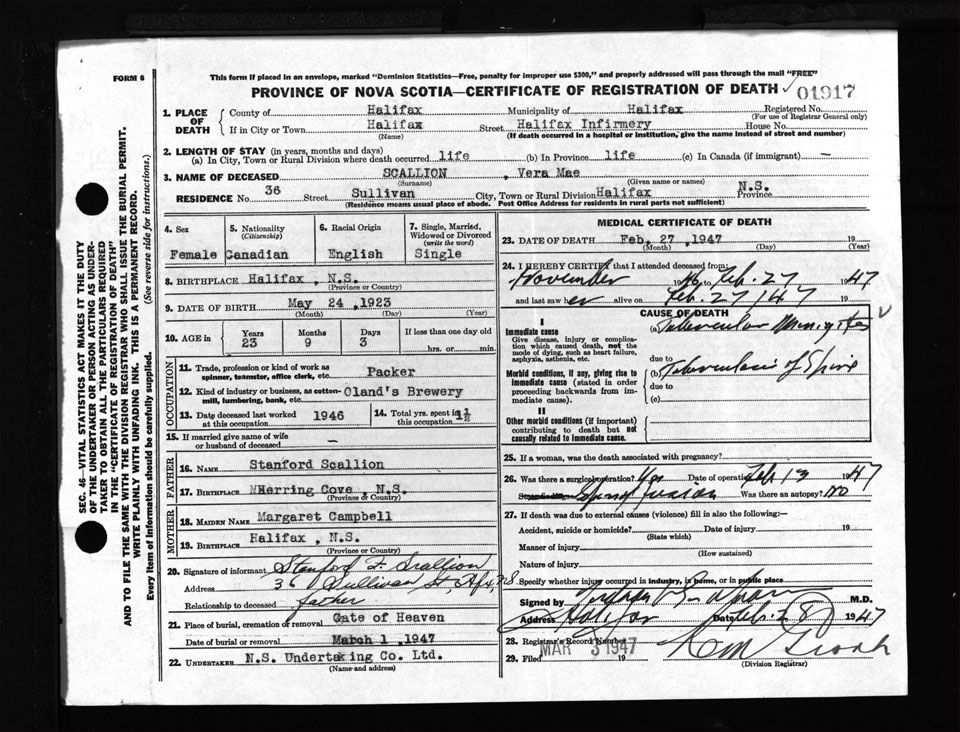 FORM 6
This form if placed in an envelope, marked "Dominion Statistics—Free, penalty for improper use $300," and properly addressed will pass through the mail "FREE"
PROVINCE OF NOVA SCOTIA—CERTIFICATE OF REGISTRATION OF DEATH
01917
SEC. 46—VITAL STATISTICS ACT MAKES IT THE DUTY
OF THE UNDERTAKER OR PERSON ACTING AS UNDER-
TAKER TO OBTAIN ALL THE PARTICULARS REQUIRED
IN THE "CERTIFICATE OF REGISTRATION OF DEATH"
AND TO FILE THE SAME WITH THE DIVISION REGISTRAR WHO SHALL ISSUE THE BURIAL PERMIT.
WRITE PLAINLY WITH UNFADING INK. THIS IS A PERMANENT RECORD.
Every item of Information should be carefully supplied. (See reverse side for instructions.)
1. PLACE OF DEATH County of Halifax Municipality of Halifax Registered No.
(For use of Registrar General only)
If in City or Town Halifax Street Halifax Infirmery House No.
(Name) (If death occurred in a hospital or institution, give the name instead of street and number)
2. LENGTH OF STAY (in years, months and days)
(a) In City, Town or Rural Division where death occurred life (b) In Province life (c) In Canada (if immigrant) —
3. NAME OF DECEASED SCALLION , Vera Mae
(Surname) (Given name or names)
RESIDENCE No. 36 Street Sullivan City, Town or Rural Division Halifax N.S. Province
(Residence means usual place of abode. Post Office Address for residents in rural parts not sufficient)
4. Sex 5. Nationality (Citizenship) 6. Racial Origin 7. Single, Married, Widowed or Divorced (write the word)
Female Canadian English Single
8. BIRTHPLACE Halifax , N.S.
(Province or Country)
9. DATE OF BIRTH May 24 ,1923
(Month) (Day) (Year)
10. AGE in Years Months Days If less than one day old
23 9 3 hrs. or min.
OCCUPATION
11. Trade, profession or kind of work as spinner, teamster, office clerk, etc. Packer
12. Kind of industry or business, as cotton-mill, lumbering, bank, etc. Oland's Brewery
13. Date deceased last worked at this occupation 1946 14. Total yrs. spent in this occupation 1½
15. If married give name of wife or husband of deceased —
FATHER
16. Name Stanford Scallion
17. Birthplace Herring Cove , N.S.
(Province or Country)
MOTHER
18. Maiden Name Margaret Campbell
19. Birthplace Halifax , N.S.
(Province or Country)
20. Signature of informant Stanford F. Scallion
Address 36 Sullivan St, Hfx, N.S.
Relationship to deceased father
21. Place of burial, cremation or removal Gate of Heaven
Date of burial or removal March 1 ,1947
22. UNDERTAKER N.S. Undertaking Co. Ltd.
(Name and address)
MEDICAL CERTIFICATE OF DEATH
23. DATE OF DEATH Feb. 27 ,1947 19
(Month) (Day) (Year)
24. I HEREBY CERTIFY that I attended deceased from
November 1946 to Feb. 27 1947
and last saw her alive on Feb. 27/47 19
CAUSE OF DEATH
I
Immediate cause
Give disease, injury or complication which caused death, not the mode of dying, such as heart failure, asphyxia, asthenia, etc.
(a) Tubercular Meningitis
due to
Morbid conditions, if any, giving rise to immediate cause (stated in order proceeding backwards from immediate cause).
(b) Tuberculosis of Spine
due to
(c)
II
Other morbid conditions (if important) contributing to death but not causally related to immediate cause.
25. If a woman, was the death associated with pregnancy?
26. Was there a surgical operation? Yes Date of operation Feb 13 1947
Spinal fusion Was there an autopsy? No
27. If death was due to external causes (violence) fill in also the following:—
Accident, suicide or homicide? Date of injury 19
(State which)
Manner of injury
(How sustained)
Nature of injury
Specify whether injury occurred in Industry, in home, or in public place
Signed by M.D.
Address Halifax Date Feb. 28 1947
28. Registrar's Record Number
29. Filed MAR 3 1947 19
(Division Registrar)